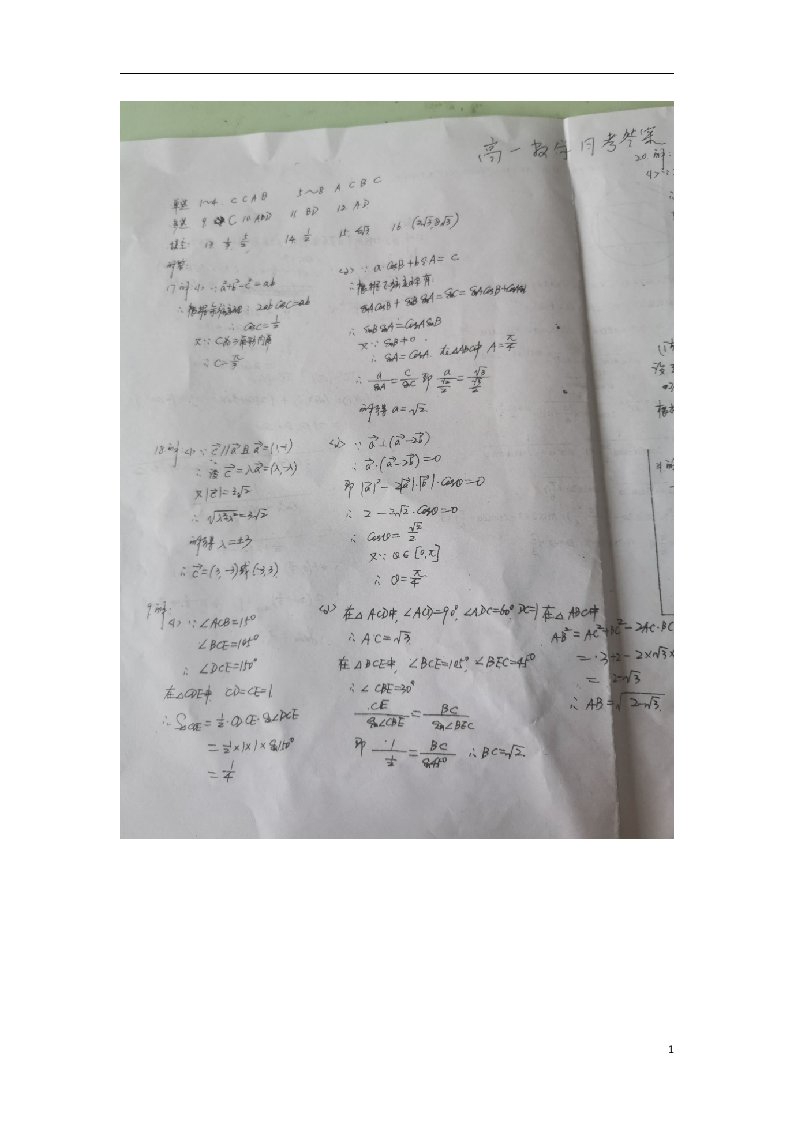 高一数学月考答案
单选 1~4. C C A B 5~8 A C B C
多选 9 C 10 ABD 11 BD 12 AD
填空 14. 1/2 16. (2√3, 8√3)
解答:
17.解 <1> ∵ a²+b²-c²=ab
∴根据余弦定理: 2ab cosC=ab
∴ cosC=1/2
又∵ C为三角形内角
∴ C=π/3
<2> ∵ a·cosB+b·sinA = c
∴根据正弦定理有
sinAcosB + sinB sinA = sinC = sinAcosB+cosAsinB
∴ sinBsinA=cosAsinB
又∵ sinB≠0
∴ sinA=cosA. 在△ABC中 A=π/4
∴ a/sinA = c/sinC 即 a/(√2/2) = √3/(√3/2)
解得 a=√2.
18.解 <1> ∵ c⃗∥a⃗且a⃗=(1,-1)
∴ 设 c⃗=λa⃗=(λ,-λ)
又|c⃗|=3√2
∴ √(λ²+λ²)=3√2
解得 λ=±3
∴ c⃗=(3,-3)或(-3,3).
<2> ∵ a⃗⊥(a⃗-2b⃗)
∴ a⃗·(a⃗-2b⃗)=0
即 |a⃗|²-2|a⃗|·|b⃗|·cosθ=0
∴ 2-2√2·cosθ=0
∴ cosθ=√2/2
又∵ θ∈[0,π]
∴ θ=π/4.
19.解:
<1> ∵ ∠ACB=15°
∠BCE=105°
∴ ∠DCE=150°
在△CDE中 CD=CE=1
∴ S△CDE = 1/2·CD·CE·sin∠DCE
= 1/2×1×1×sin150°
= 1/4
<2> 在△ACD中,∠ACD=90°,∠ADC=60°,DC=1
∴ AC=√3
在△BCE中,∠BCE=105°,∠BEC=45°
∴ ∠CBE=30°
CE/sin∠CBE = BC/sin∠BEC
即 1/(1/2) = BC/sin45° ∴ BC=√2.
在△ABC中
AB²=AC²+BC²-2AC·BC
=3+2-2×√3×
=2-√3
∴ AB=√(2-√3).
20.解:
<1>
1